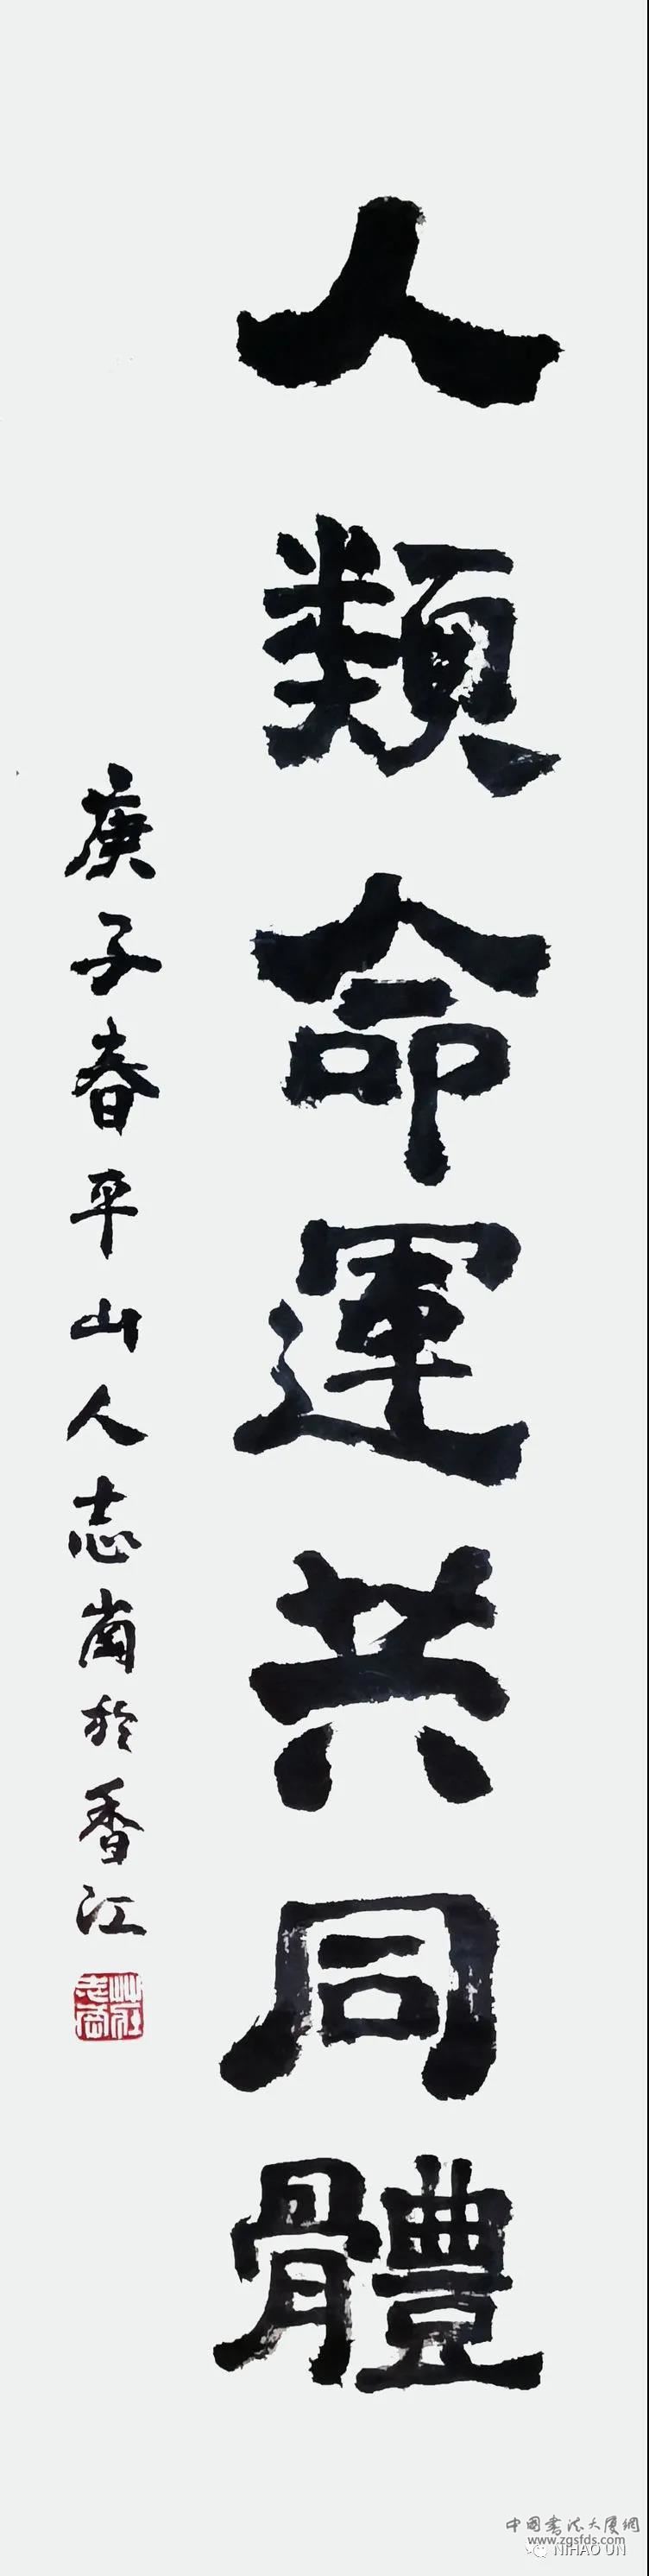 人類命運共同體
庚子春平山人志崗於香江
莊志崗
中国书法大厦網
www.zgsfds.com
NIHAO UN